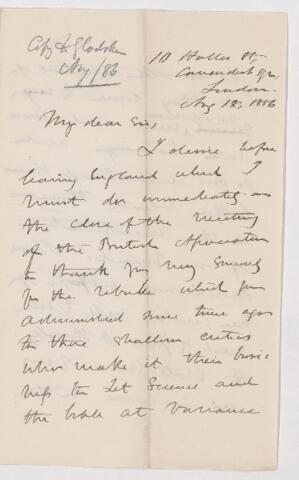 Copy to Gladstone
Aug/86
10 Holles St,
Cavendish Sq,
London.
Aug 18, 1886
My dear Sir,
I desire before
leaving England which I
must do immediately on
the close of the meeting
of the British Association
to thank you very sincerely
for the rebuke which you
administered some time ago
to those shallow critics
who make it their busi-
ness to set Science and
the bible at variance